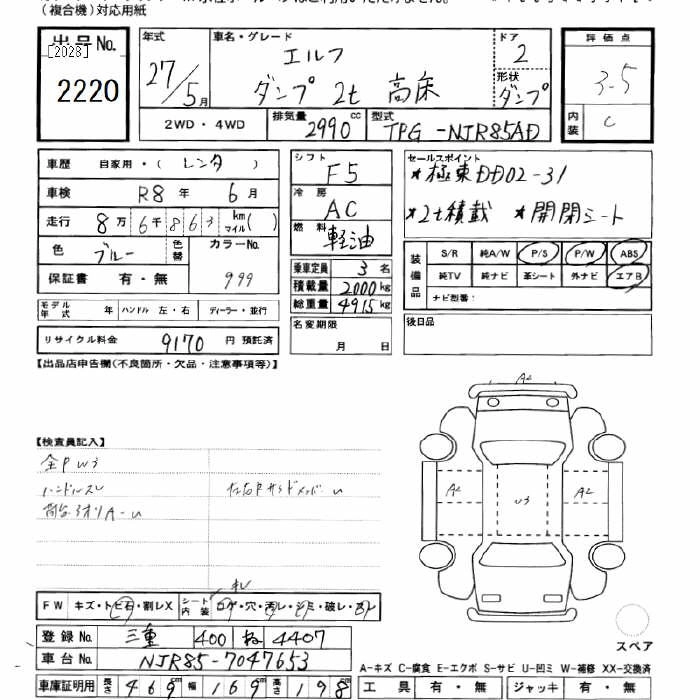 (複合機)対応用紙
出品No. [2028] 2220
年式 27/5月
車名・グレード エルフ ダンプ 2t 高床
ドア 2
形状 ダンプ
評価点 3-5
内装 C
2WD・4WD
排気量 2990cc
型式 TPG-NJR85AD
車歴 自家用・(レンタ)
車検 R8年 6月
走行 8万6千863 km マイル( )
色 ブルー 色替
カラーNo. 999
保証書 有・無
モデル年式 年 ハンドル 左・右 ディーラー・並行
リサイクル料金 9170円 預託済
シフト F5
冷房 AC
燃料 軽油
乗車定員 3名
積載量 2000kg
総重量 4915kg
名変期限 月 日
セールスポイント
*極東DD02-31
*2t積載 *開閉シート
装備品 S/R 純A/W P/S P/W ABS
純TV 純ナビ 革シート 外ナビ エアB
ナビ型番:
後日品
【出品店申告欄(不良箇所・欠品・注意事項等)】
【検査員記入】
ハンドルスレ
A2
A2
U3
A2
FW キズ・トビ石・割レX
シート内装 コゲ・穴・汚レ・シミ・破レ・スレ
登録No. 三重 400 4407
車台No. NJR85-7047653
車庫証明用 長さ 469 幅 169 高さ 198
スペア
A-キズ C-腐食 E-エクボ S-サビ U-凹ミ W-補修 XX-交換済
工具 有・無 ジャッキ 有・無